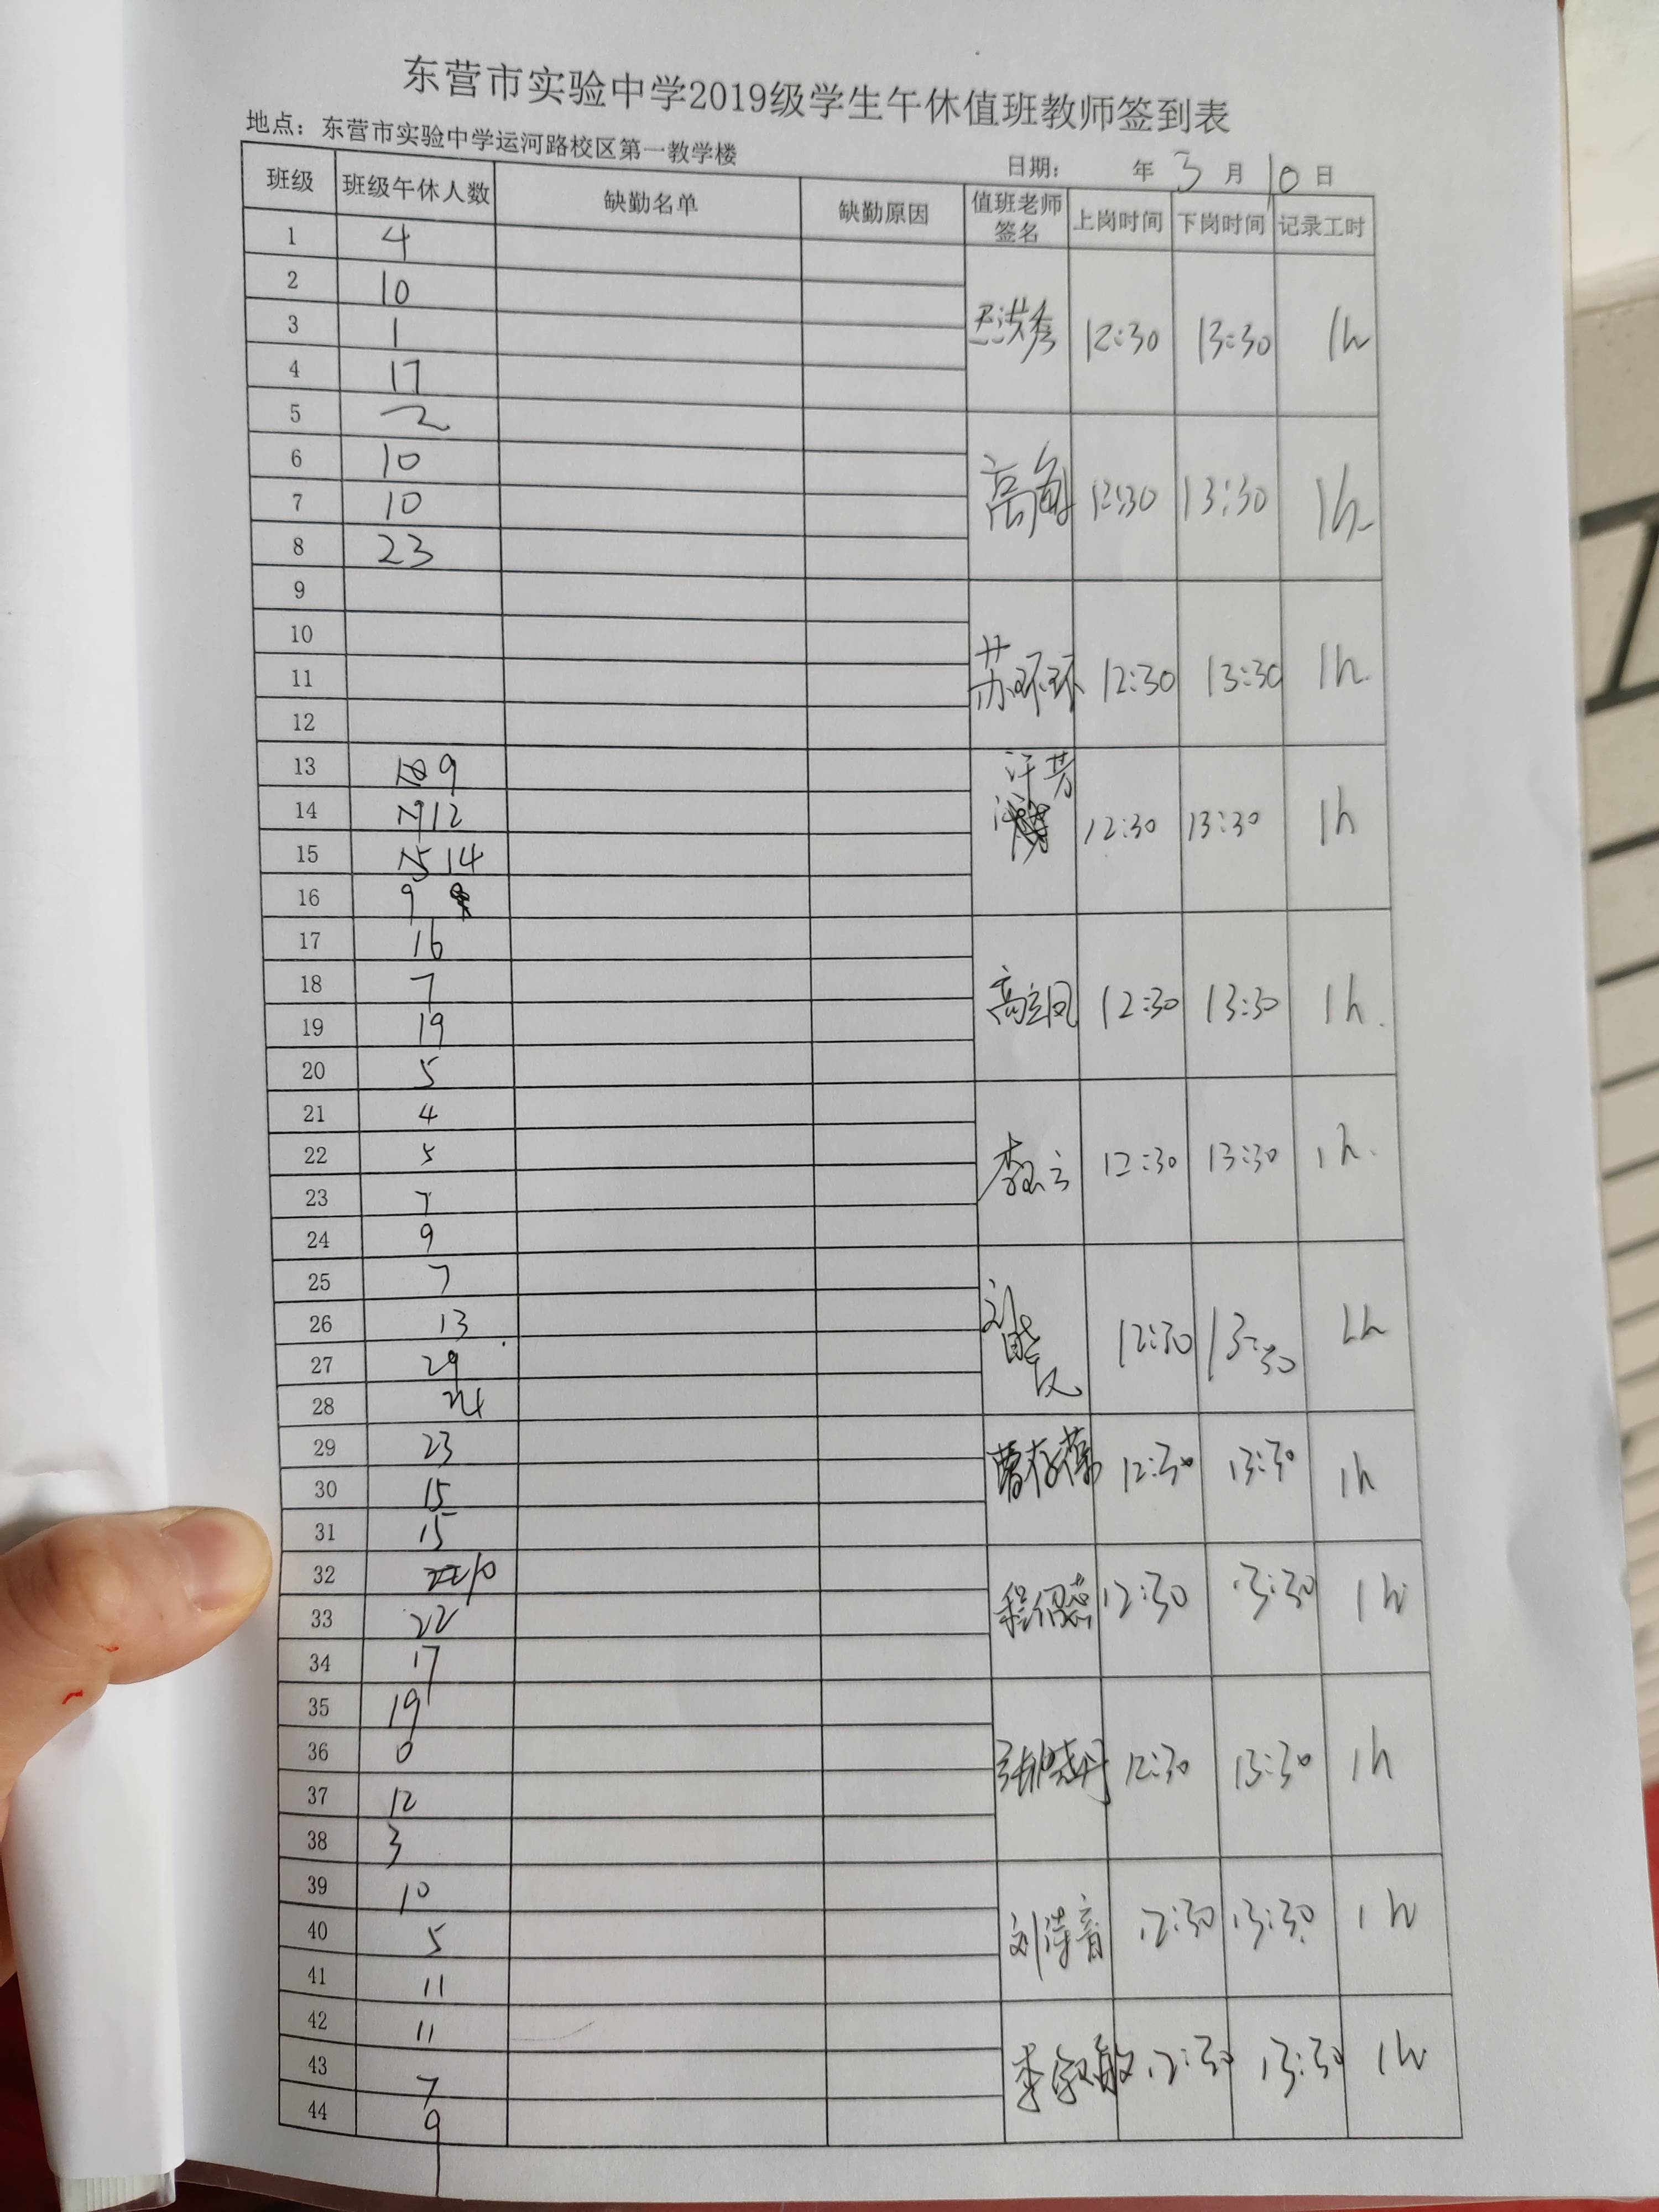 东营市实验中学2019级学生午休值班教师签到表
地点：东营市实验中学运河路校区第一教学楼
日期： 年 3 月 10 日
班级 班级午休人数 缺勤名单 缺勤原因 值班老师签名 上岗时间 下岗时间 记录工时
1 4
2 10
3 1 12:30 13:30 1h
4 17
5 2
6 10
7 10 12:30 13:30 1h
8 23
9
10
11 苏环环 12:30 13:30 1h
12
13 9 许芳
14 12 12:30 13:30 1h
15 14
16 9
17 16
18 7
19 19 高立凤 12:30 13:30 1h
20 5
21 4
22 5 12:30 13:30 1h
23 7
24 9
25 7
26 13 12:30 13:30
27 29
28 24
29 23
30 15 12:30 13:30 1h
31 15
32 10
33 22 12:30 13:30 1h
34 17
35 19
36 0 张晓丹 12:30 13:30 1h
37 12
38 3
39 10
40 5 12:30 13:30 1h
41 11
42 11
43 7 12:30 13:30 1h
44 9